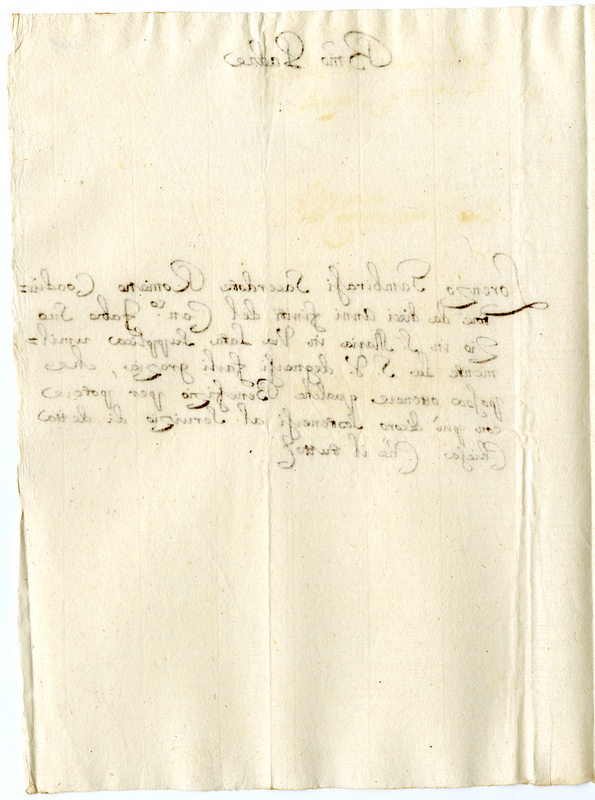 Bmo Padre
Lorenzo Tambirasi Sacerdote Romano Coadiu=
tore da dieci Anni finiti del Can.co Fabio Suo
Zio in S. Maria in Via Lata Supplica umil=
mente La S. V. degnarsi farli grazia, che
possa ottenere qualche Benefizio per potere
con più decoro sostenersi al Servizio di detta
Chiesa. Che il tutto